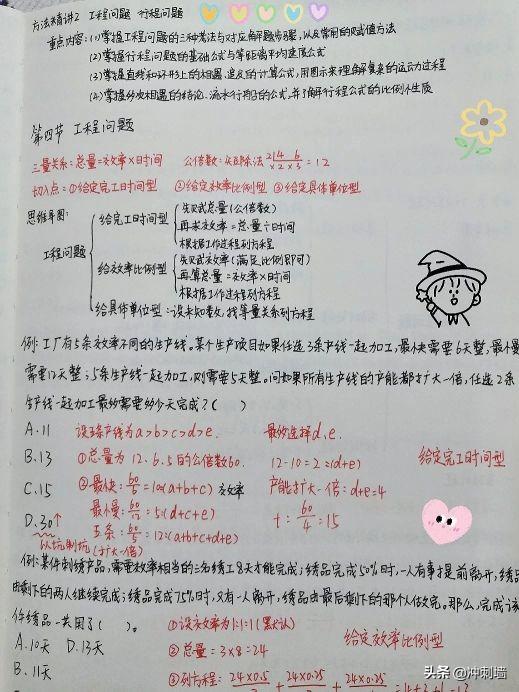 方法精讲2 工程问题 行程问题
重点内容:(1)掌握工程问题的三种考法与对应解题步骤,以及常用的赋值方法
(2)掌握行程问题的基础公式与等距离平均速度公式
(3)掌握直线和环形上的相遇、追及的计算公式,用图示来理解复杂的运动过程
(4)掌握多次相遇的结论、流水行船的公式,并了解行程公式的比例小性质
第四节 工程问题
三量关系:总量=效率×时间 公倍数:短除法 2|4 6 ×2×3=12
切入点:①给定完工时间型 ②给定效率比例型 ③给定具体单位型
思维导图:
工程问题
给完工时间型
先赋总量(公倍数)
再求效率=总量÷时间
根据工作过程列方程
给效率比例型
先赋效率(满足比例即可)
再算总量=效率×时间
根据工作过程列方程
给具体单位型:设未知数,找等量关系列方程
例:工厂有5条效率不同的生产线。某个生产项目如果任选3条产线一起加工,最快需要6天整,最慢
需要12天整;5条生产线一起加工,则需要5天整。问如果所有生产线的产能都扩大一倍,任选2条
生产线一起加工最多需要多少天完成?( )
A.11 设5条产线为a>b>c>d>e. 最多选择d、e.
B.13 ①总量为12、6、5的公倍数60. 12-10=2=(d+e) 给定完工时间型
C.15 ②最快:60/6=10(a+b+c) 效率 产能扩大一倍:d+e=4
最慢:60/12=5(d+c+e) t=60/4=15
D.30↑ 五条:60/5=12(a+b+c+d+e)
以坑制坑(扩大一倍)
例:某件刺绣产品,需要效率相当的三名绣工8天才能完成;绣品完成50%时,一人有事提前离开,绣品
由剩下的两人继续完成;绣品完成75%时,又有一人离开,绣品由最后剩下的那个人做完。那么,完成该
件绣品一共用了( )。 ①设效率为1:1:1(默认) 给定效率比例型
A.10天 D.13天 ②总量=3×8=24
B.11天 ③列方程:24×0.5/3+24×0.25/2+24×0.25/1=4+3+6=13
头条@冲刺墙